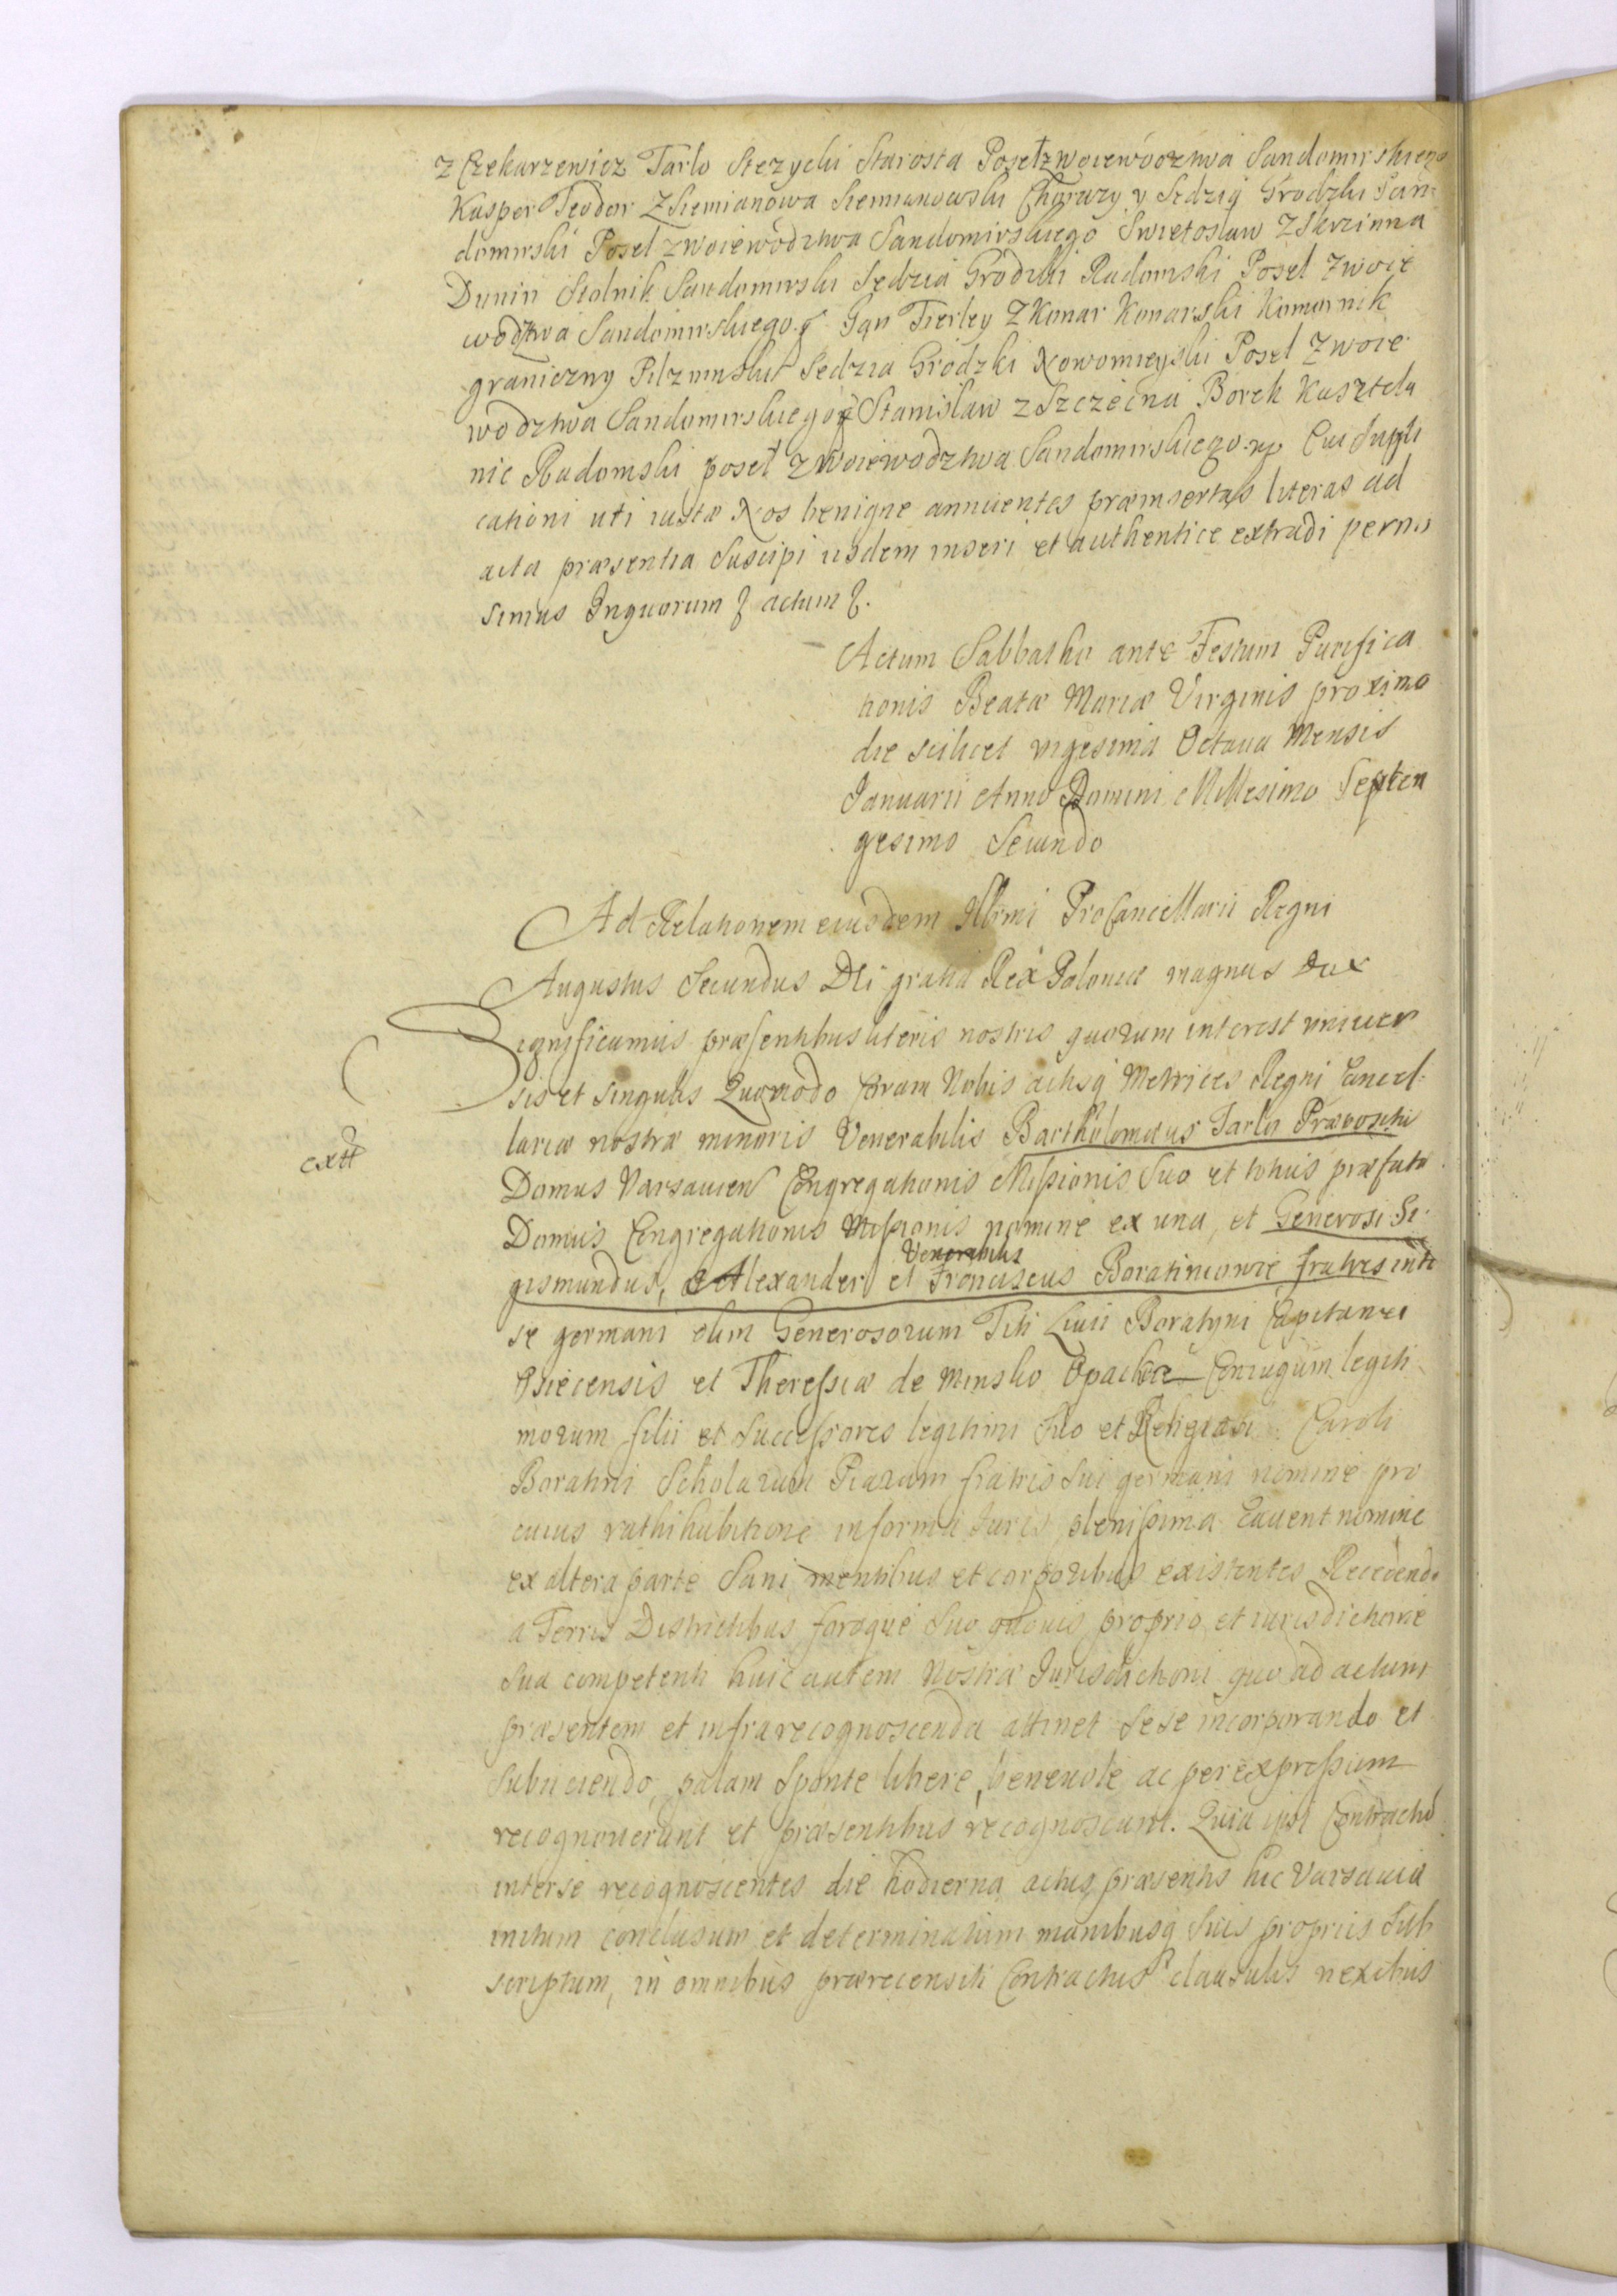 z Czekarzewicz Tarło Stezycki Starosta Poseł z woiewodztwa Sandomirskiego
Kasper Teodor Z Siemianowa Siemianowski Chorąży y Sędzią Grodzki San-
domirski Poseł z woiewodztwa Sandomirskiego Swietosław Z Skrzinna
Dunin Stolnik Sandomirski Sędzia Grodzki Radomski Poseł z woie
wodztwa Sandomirskiego Jan Fierley Z Konar Konarski Komornik
graniczny Pilznenski Sędzia Grodzki Nowomieyski Poseł z woie
wodztwa Sandomirskiego Stanisław z Szczecna Borek Kasztela
nic Radomski poseł z woiewodztwa Sandomirskiego mp Cui Suppli
cationi uti iustæ Nos benigne annuentes præinsertas literas ad
acta præsentia Suscipi iisdem inseri et authentice extradi permi
simus Inquorum actum
Actum Sabbatho ante Festum Purifica
tionis Beatæ Mariæ Virginis proximo
die scilicet vigesima Octava Mensis
Januarii Anno Domini Millesimo Septen
gesimo Secundo
Ad Relationem eiusdem Illrmi ProCancellarii Regni
Augustus Secundus Dei gratia Rex Poloniæ magnus Dux
Significamus præsentibus literis nostris quorum interest univer
sis et singulis Quomodo Coram Nobis actisq Metrices Regni Cancel-
lariæ nostræ minoris Venerabilis Bartholomæus Tarło Præpositus
extt
Domus Varsavien Congregationis Missionis Suo et totius præfatæ
Domus Congregationis Missionis nomine ex una, et Generosi Si
gismundus, Alexander et Venerabilis Franciscus Boratiniowie fratres inte
se germani olim Generosorum Titi Livii Boratyni Capitanei
Osiecensis et Theressiæ de Minsko Opackie Coniugum legiti
morum filii et Successores legitimi Suo et Religiosi Caroli
Boratini Scholarum Piarum fratris sui germani nomine pro
cuius rathihabitione in forma Iuris plenissima Cavent nomine
ex altera parte Sani mentibus et corporibus existentes Recedendo
a Terris Districtibus foroque Suo quovis proprio et iurisdictione
Sua competenti huic autem Nostræ Jurisdictioni quo ad actum
præsentem et infra recognoscenda attinet sese incorporando et
Subiiciendo, palam Sponte libere, benevole ac per expressum
recognoverunt et præsentibus recognoscunt. Quia ipsi Contractū
inter se recognoscentes die hodierna actus præsentis hic Varsaviæ
initum conclusum et determinatum manibusq Suis propriis Sub
scriptum, in omnibus prærecensiti Contractus clausulis nexibus